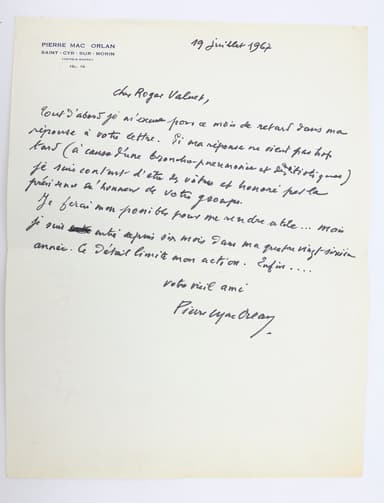 PIERRE MAC ORLAN
SAINT-CYR-SUR-MORIN
TÉL. 16
19 juillet 1967
cher Roger Valuet,
Tout d'abord je m'excuse pour ce mois de retard dans ma
réponse à votre lettre. Si ma réponse ne vient pas trop
tard (à cause d'une broncho-pneumonie et d'antibiotiques)
je suis content d'être des vôtres et honoré par la
présidence d'honneur de votre groupe.
Je ferai mon possible pour me rendre utile... mais
je suis entré depuis six mois dans ma quatre vingt sixième
année. Ce détail limite mon action. Enfin....
votre vieil ami
Pierre Mac Orlan